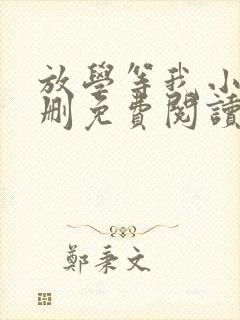 放學等我小
刪免費閱讀
鄭秉文